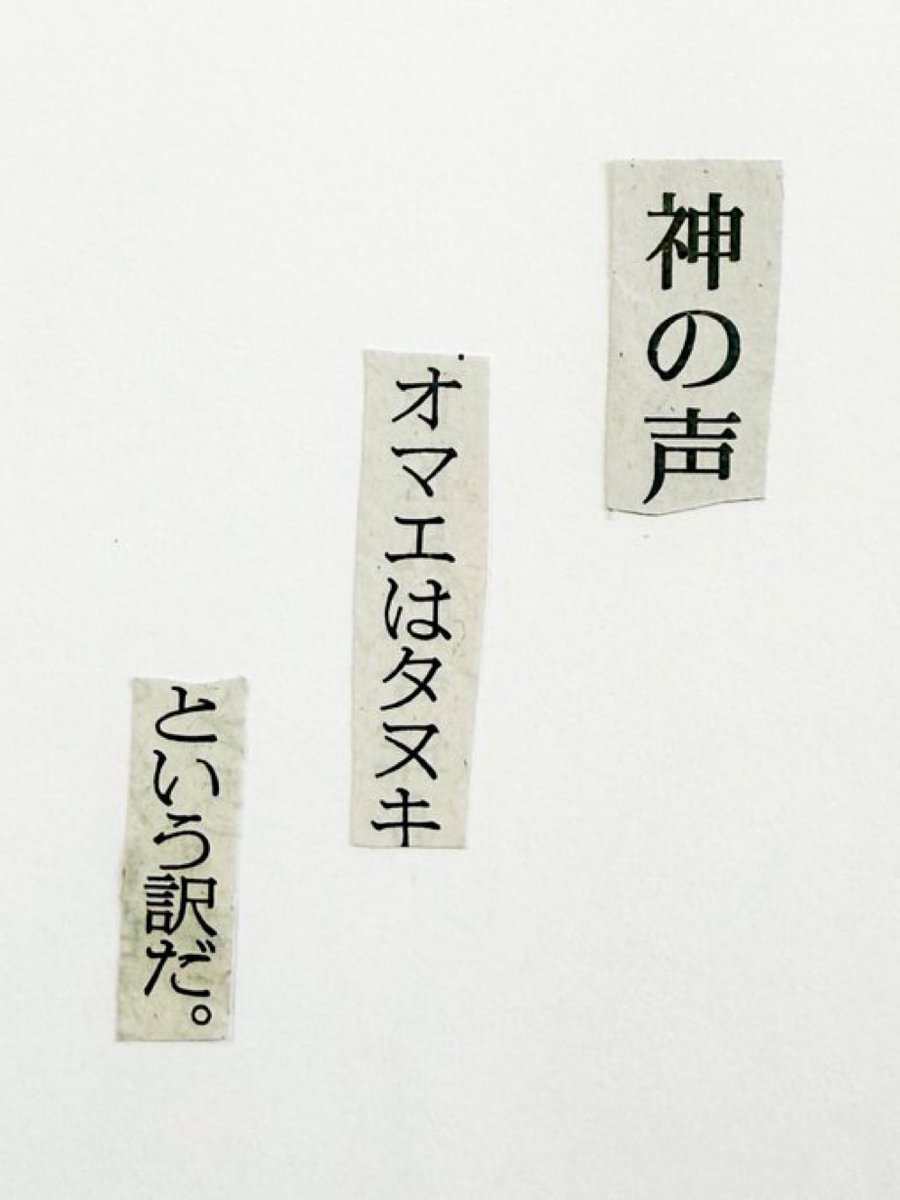 神の声
オマエはタヌキ
という訳だ。